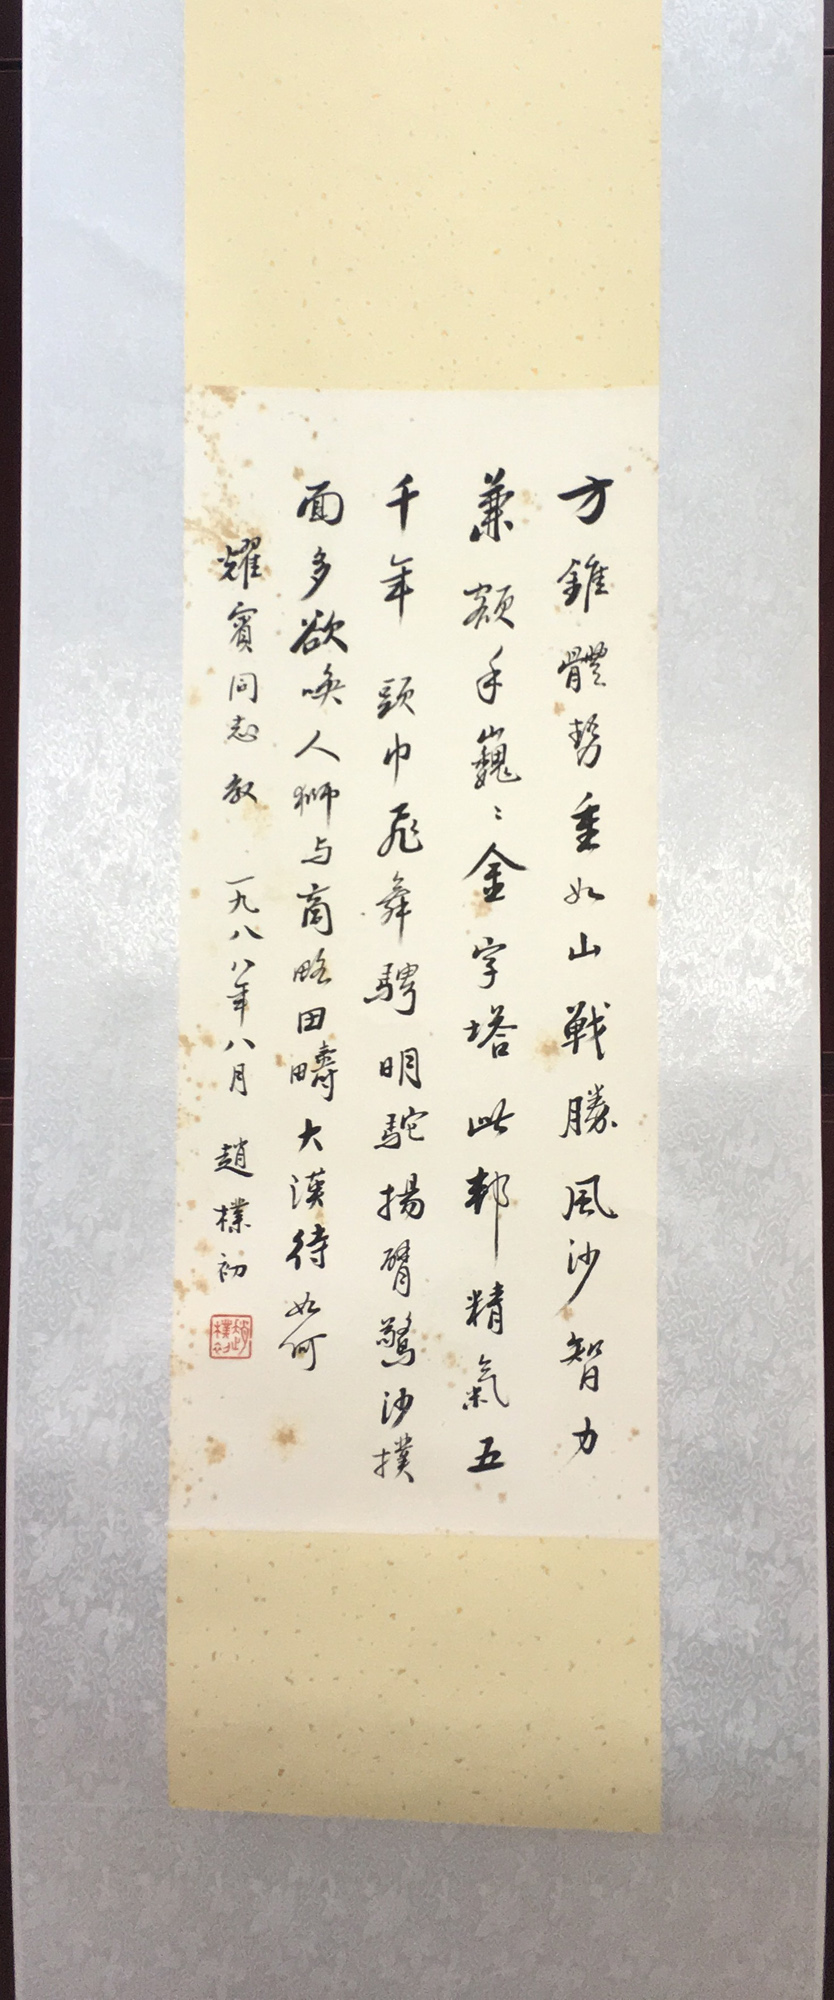 方錐體勢重如山戰勝風沙智力
兼額手巍〻金字塔此邦精氣五
千年頭巾飛舞騁明駝揚臂驚沙撲
面多欲喚人獅与商略田疇大漠待如何
耀賓同志教 一九八八年八月 趙樸初
趙樸初